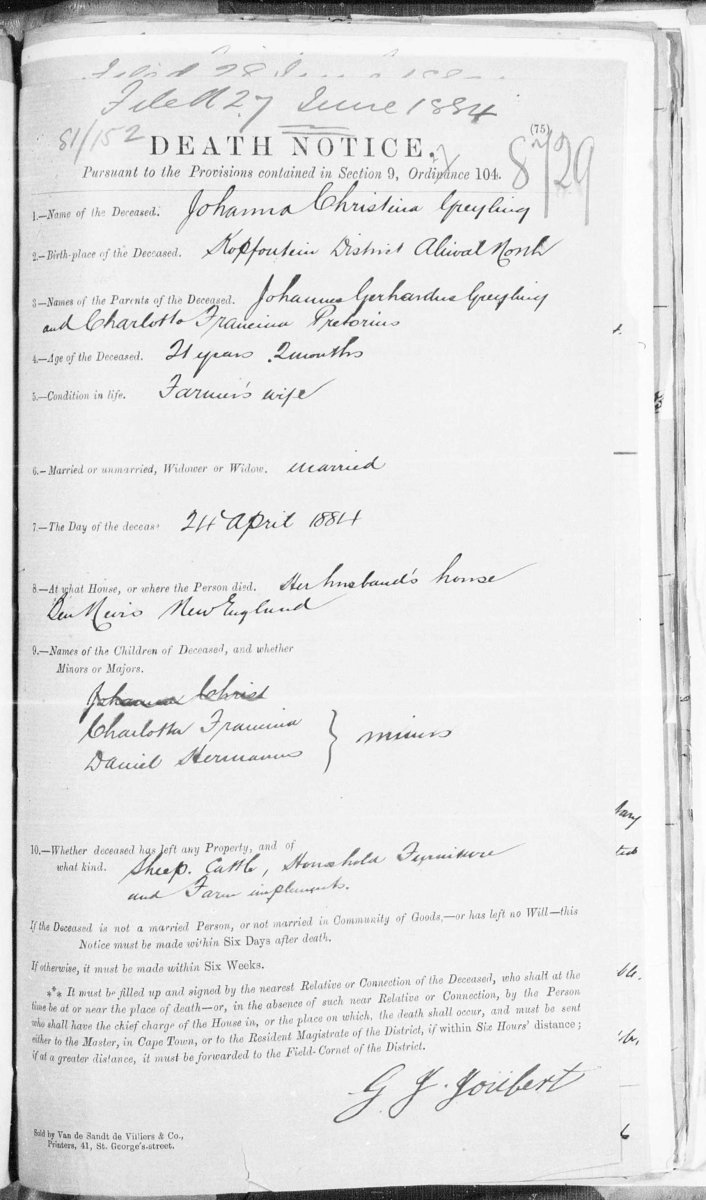 Filed 27 June 1884
81/152
(75)
DEATH NOTICE.
8729
Pursuant to the Provisions contained in Section 9, Ordinance 104.
1.—Name of the Deceased. Johanna Christina Greyling
2.—Birth-place of the Deceased. Kopfontein District Aliwal North
3—Names of the Parents of the Deceased. Johannes Gerhardus Greyling
and Charlotta Francina Pretorius
4.—Age of the Deceased. 21 years 2 months
5.—Condition in life. Farmer's wife
6.—Married or unmarried, Widower or Widow. married
7.—The Day of the deceas 24 April 1884
8.—At what House, or where the Person died. Her husband's house
New England
9.—Names of the Children of Deceased, and whether
Minors or Majors.
Johanna Christ
Charlotta Francina
Daniel Hermanus } minors
10.—Whether deceased has left any Property, and of
what kind. Sheep. Cattle, Household Furniture
and Farm implements.
If the Deceased is not a married Person, or not married in Community of Goods,—or has left no Will—this
Notice must be made within Six Days after death.
If otherwise, it must be made within Six Weeks.
*** It must be filled up and signed by the nearest Relative or Connection of the Deceased, who shall at the
time be at or near the place of death—or, in the absence of such near Relative or Connection, by the Person
who shall have the chief charge of the House in, or the place on which, the death shall occur, and must be sent
either to the Master, in Cape Town, or to the Resident Magistrate of the District, if within Six Hours' distance;
if at a greater distance, it must be forwarded to the Field-Cornet of the District.
G J Joubert
Sold by Van de Sandt de Villiers & Co.,
Printers, 41, St. George's-street.